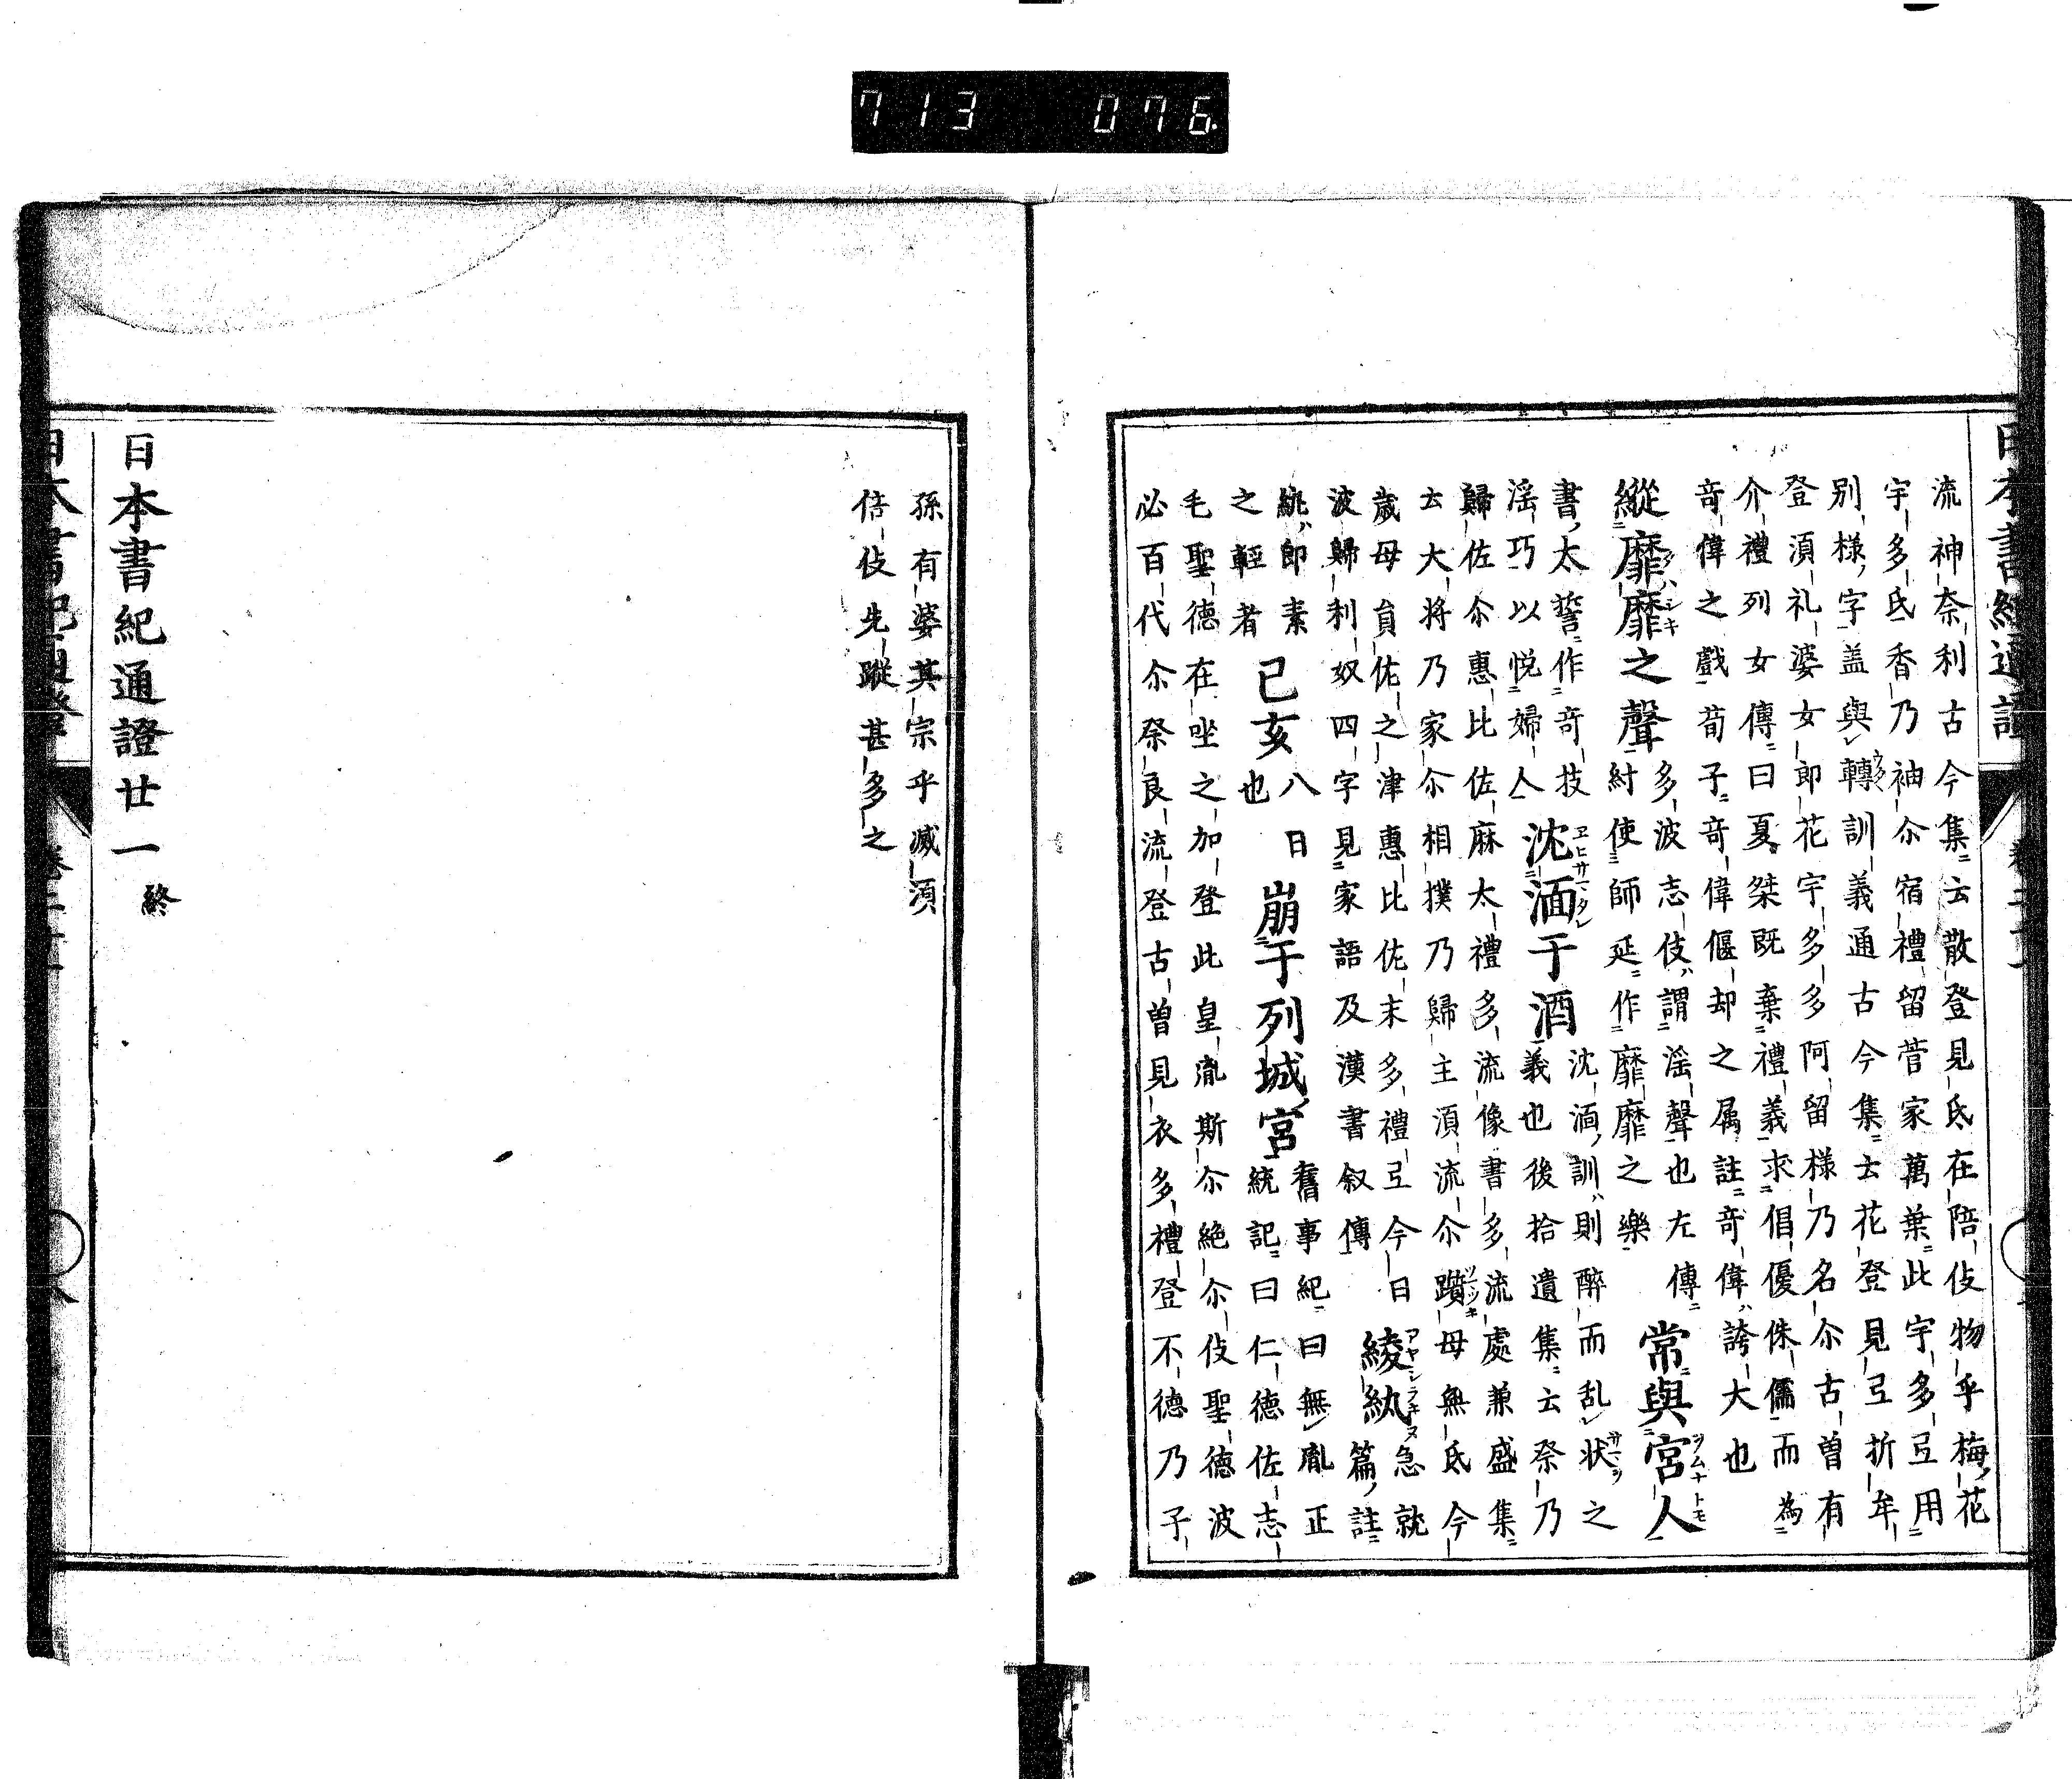 713 076
日本書紀通證
流神奈利古今集云散登見氐在陪伎物乎梅花
宇多氐香乃袖尒宿禮留菅家萬葉此宇多弖用
別樣字盖與轉訓義通古今集云花登見弖折牟
登須礼婆女郎花宇多多阿留樣乃名尒古曽有
介禮列女傳曰夏桀既棄禮義求倡優侏儒而為
竒偉之戲荀子竒偉偃却之属註竒偉誇大也
縱靡靡之聲
多波志伎謂淫聲也左傳
紂使師延作靡靡之樂
常與宮人
書太誓作竒技
淫巧以悦婦人
沈湎于酒
沈湎訓則醉而乱状之
義也後拾遺集云祭乃
歸佐尒惠比佐麻太禮多流像書多流處兼盛集
云大将乃家尒相撲乃歸主須流尒躓母無氐今
歳母負佐之津惠比佐末多禮弖今日
波歸利奴四字見家語及漢書叙傳
綾紈
急就
篇註
綈即素
之輕者
己亥
八日
也
崩于列城宮
舊事紀曰無胤正
統記曰仁德佐志
毛聖德在坐之加登此皇胤斯尒絶尒伎聖德波
必百代尒祭良流登古曽見衣多禮登不德乃子
孫有婆其宗乎滅須
倍伎先蹤甚多之
日本書紀通證廿一 終